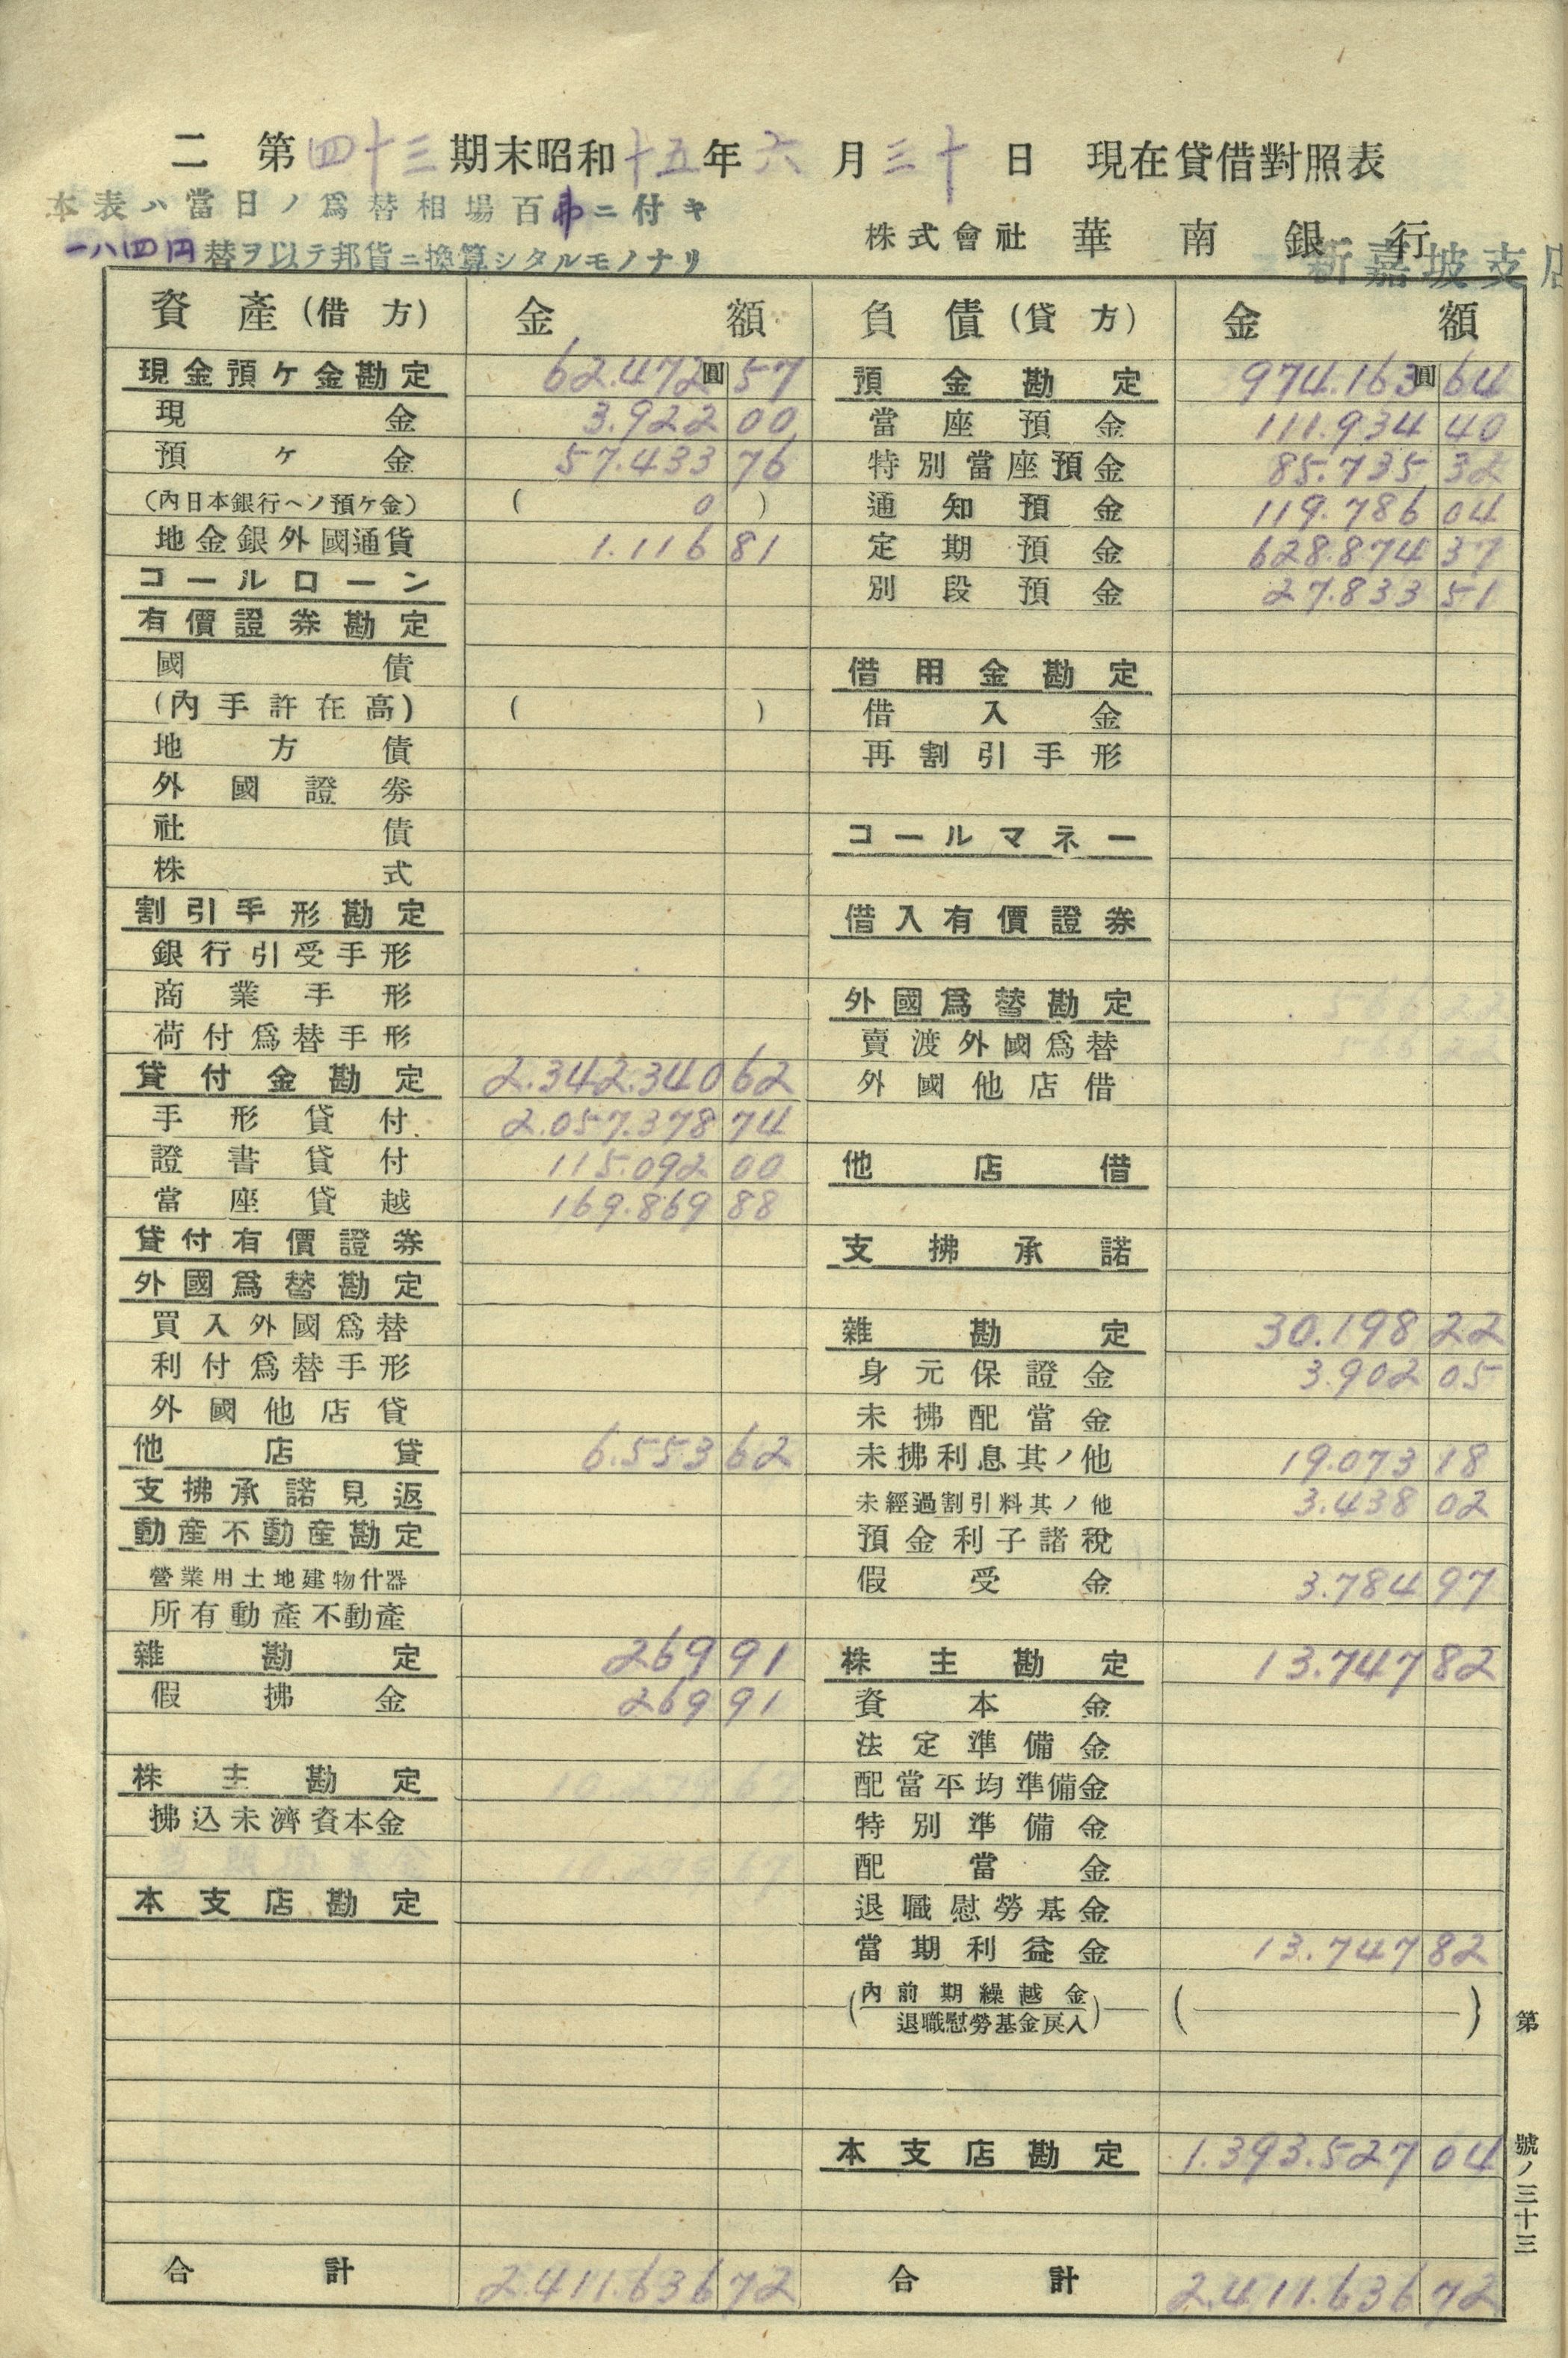 二 第四十三期末昭和十五年六月三十日 現在貸借對照表
本表ハ當日ノ爲替相場百弗ニ付キ
一八四円替ヲ以テ邦貨ニ換算シタルモノナリ
株式會社 華南銀行
新嘉坡支店
資產(借方) 金額 負債(貸方) 金額
現金預ケ金勘定 62.472圓57 預金勘定 974.163圓64
現金 3.922 00 當座預金 111.934 40
預ケ金 57.433 76 特別當座預金 85.735 32
(內日本銀行ヘノ預ケ金) ( 0 ) 通知預金 119.786 04
地金銀外國通貨 1.116 81 定期預金 628.874 37
コールローン 別段預金 27.833 51
有價證券勘定
國債 借用金勘定
(內手許在高) ( ) 借入金
地方債 再割引手形
外國證券
社債 コールマネー
株式
割引手形勘定 借入有價證券
銀行引受手形
商業手形 外國爲替勘定
荷付爲替手形 賣渡外國爲替
貸付金勘定 2.342.340 62 外國他店借
手形貸付 2.057.378 74
證書貸付 115.092 00 他店借
當座貸越 169.869 88
貸付有價證券 支拂承諾
外國爲替勘定
買入外國爲替 雜勘定 30.198 22
利付爲替手形 身元保證金 3.902 05
外國他店貸 未拂配當金
他店貸 6.553 62 未拂利息其ノ他 19.073 18
支拂承諾見返 未經過割引料其ノ他 3.438 02
動產不動產勘定 預金利子諸稅
營業用土地建物什器 假受金 3.784 97
所有動產不動產
雜勘定 269 91 株主勘定 13.747 82
假拂金 269 91 資本金
法定準備金
株主勘定 配當平均準備金
拂込未濟資本金 特別準備金
配當金
本支店勘定 退職慰勞基金
當期利益金 13.747 82
(內前期繰越金 退職慰勞基金戾入) ( )
本支店勘定 1.393.527 04
合計 2.411.636 72 合計 2.411.636 72
第 號ノ三十三